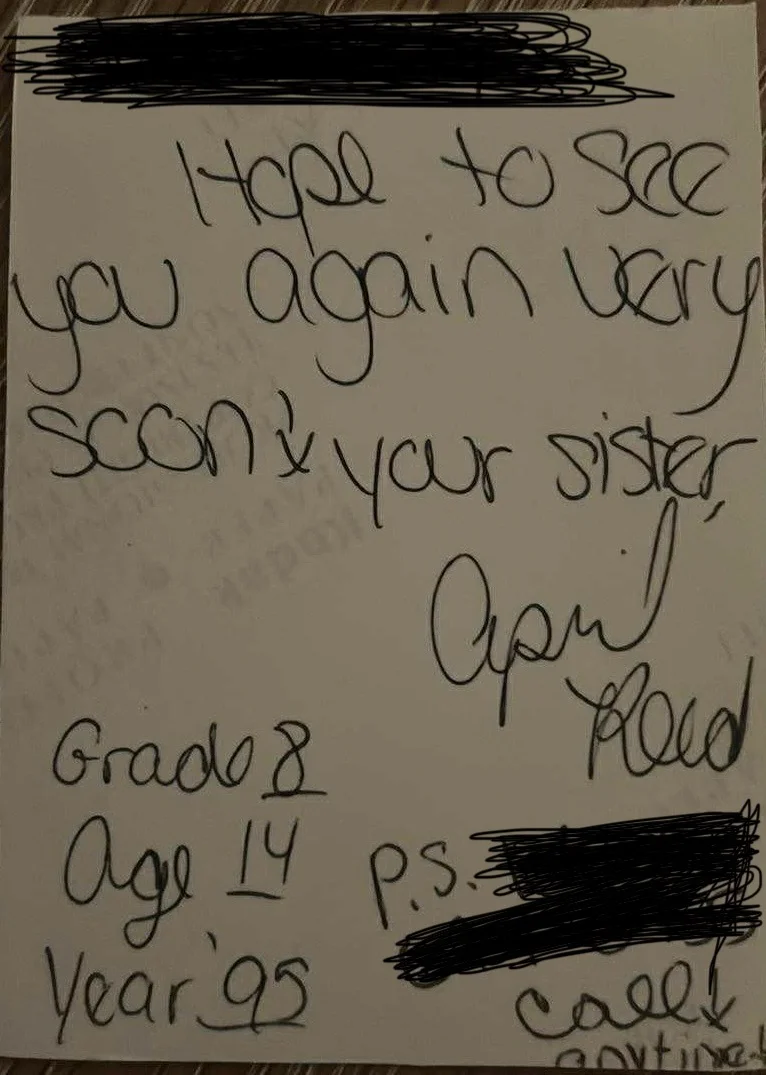 Hope to see
you again very
soon! your sister,
April
Reed
Grade 8
Age 14
P.S.
Year '95
call!
anytime!